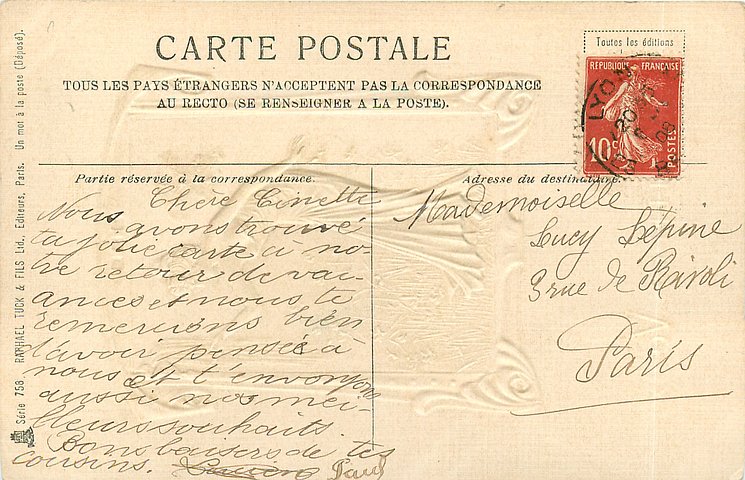 CARTE POSTALE
TOUS LES PAYS ÉTRANGERS N'ACCEPTENT PAS LA CORRESPONDANCE
AU RECTO (SE RENSEIGNER A LA POSTE).
Toutes les éditions
RÉPUBLIQUE FRANÇAISE
10c
POSTES
LYON
Partie réservée à la correspondance.
Chère Cinette
Nous avons trouvé
ta jolie carte à no-
tre retour de vac-
ances et nous te
remercions bien
d'avoir pensée à
nous et t'envoyons
aussi nos mei-
lleurs souhaits.
Bons baisers de tes
cousins. Lucien Paul
Adresse du destinataire.
Mademoiselle
Lucy Lépine
3 rue de Rivoli
Paris
Série 758 RAPHAEL TUCK & FILS Ltd., Editeurs, Paris. Un mot à la poste (Déposé).